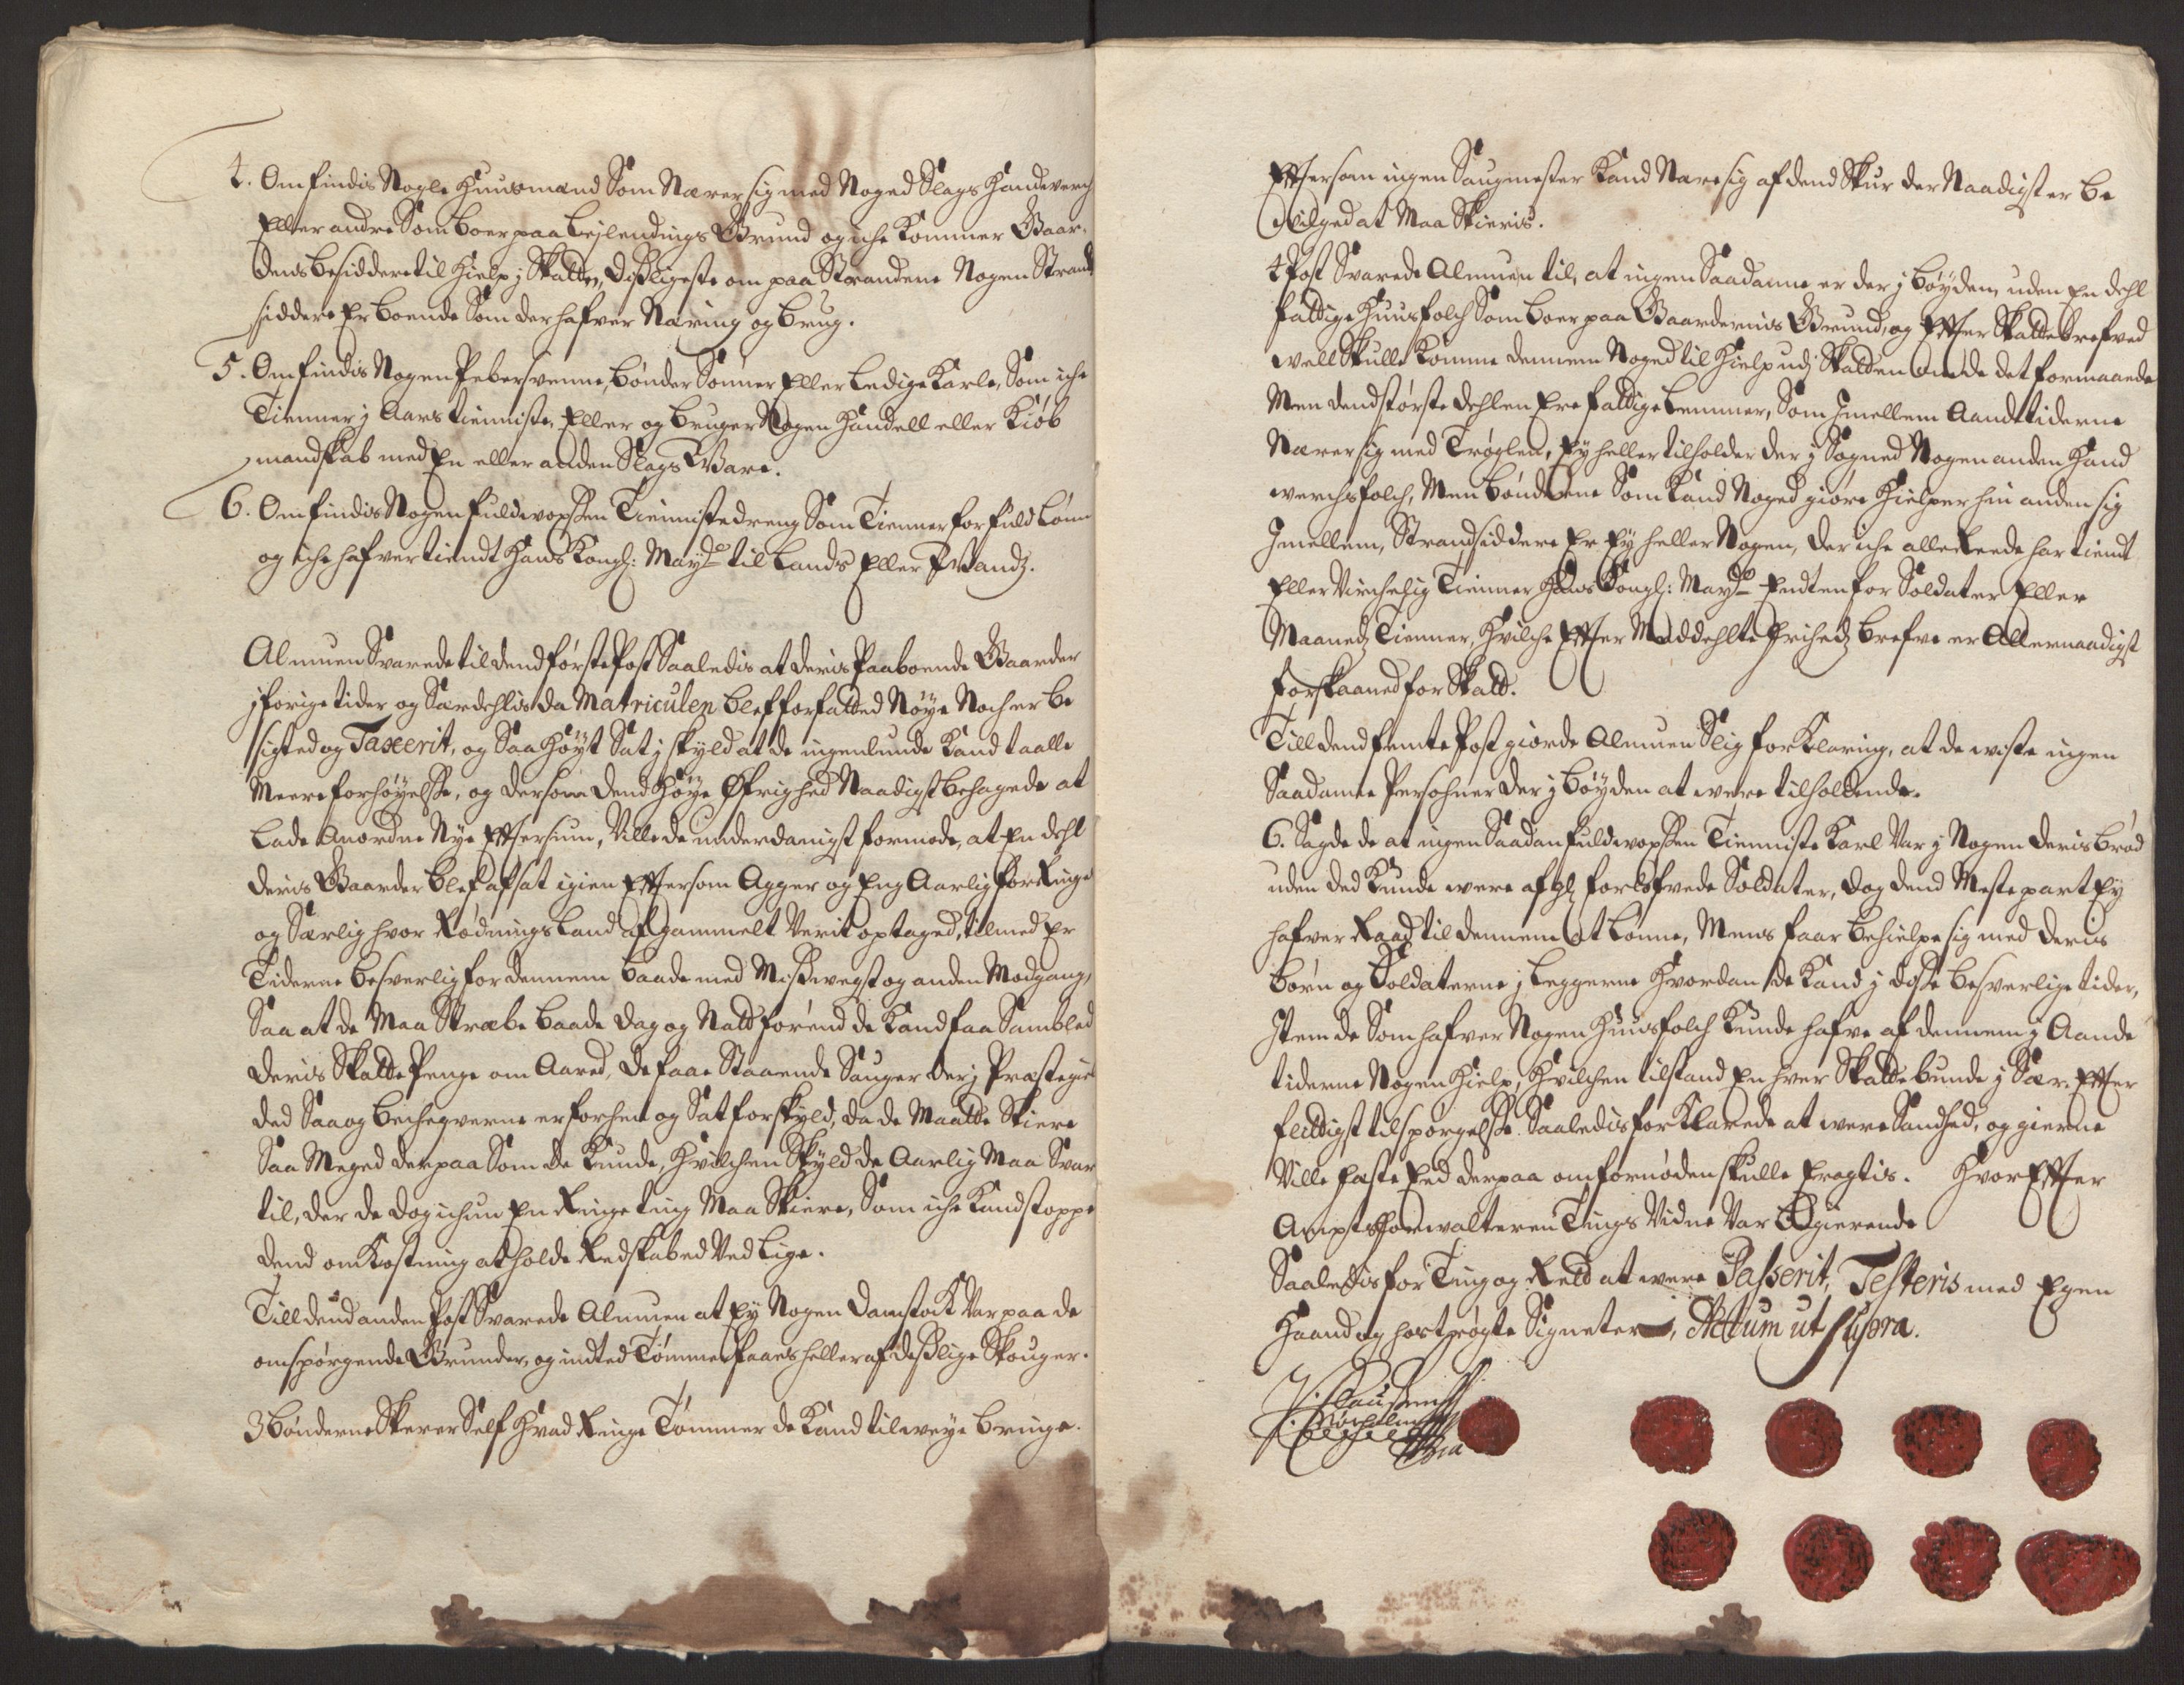 4. Om findis Nogle Huusmænd Som Nærer sig med Noged Slags Handverch
Eller andre Som boer paa Leylendings Grund og iche kommer Gaar-
dens besiddere til Hielp j Skatten, dißligeste om paa Strandene Nogen Strand
siddere Er boende Som der hafver Næring og brug.
5. Om findis Nogen Pebersvenne, bønder Sønner Eller Ledige Karle, Som iche
Tienner j Aars tienniste, Eller og bruger Nogen Handell eller Kiøb
mandskab med En eller anden Slags Ware.
6. Om findis Nogen fuldvoxsen Tienniste dreng Som Tienner for fuld Lønn
og iche hafver tiendt Hans Kongl: Mayts til Lands Eller Vandz.
Almuen Svarede til dend første Post Saaledis at deris Paaboende Gaarder
j forige tider og Særdehlis da Matriculen blef forfatted Nøye Noch er be
sigted og Taxerit, og Saa Høyt Sat j skyld at de ingenlunde kand taalle
Meere forhøyelße, og dersom dend Høye Øfrighed Naadigst behagede at
Lade Anordne Nye Eftersiun, Ville de underdanigst formode, at En dehl
deris Gaarder blef afsat igien Eftersom Agger og Eng Aarlig forringes
og Særlig hvor Rødnings Land af gammelt Verit optaged, tilmed Er
Tiderne besverlig for dennem baade med Mißvegst og anden Modgang,
Saa at de Maa Stræbe baade dag og Natt førend de kand faa Sambled
deris Skatte Penge om Aared, de faae Staaende Sauger der j Præstegiel
ded Saa og bechequerne er forhen og Sat for skyld, da de Maatte Skiere
Saa Meged derpaa Som de kunde, Hvilchen Skyld de Aarlig Maa Svar
til, der de dog ichun En Ringe ting Maa Skiere, Som iche kand stoppe
dend omkostning at holde Redskabed Ved Lige.
Till dend anden Post Svarede Almuen at Ey Nogen damstock Var paa de
omspørgende Grunder, og indted Tømmer faaes heller af deßlige Skouger.
3 Bønderne Skerer Self Hvad Ringe Tømmer de kand tilveye bringe.
Eftersom ingen Saugmester kand Nære sig af dend Skur der Naadigst er be
vilged at Maa Skieris.
4 Post Svarede Almuen til, at ingen Saadanne er der j bøyden, uden En dehl
fattige Huusfolch Som boer paa Gaardernis Grund, og Efter Skattebrefved
vell Skulle komme dennem Noged til Hielp udj Skatten om de det formaaede
Men dend største dehlen Ere fattige Lemmer, Som Jmellem Aandtiderne
Nærer sig med Trøglen, Ey heller tilholder der j Sogned Nogen anden Hand
verchsfolch, Men bønderne Som kand Noged giøre Hielper hin anden sig
Jmellem, Strandsiddere Er Ey heller Nogen, der iche allereede har tiendt
Eller Virchelig Tienner Hans Kongl: Mayts Endten for Soldater Eller
Maaneds Tienner, Hvilche Efter Meddehlte frihedz brefve er Allernaadigst
forskaaned for Skatt.
Till dend femte Post giorde Almuen Slig forklaring, at de viste ingen
Saadanne Persohner der j bøyden at være tilholdende.
6. Sagde de at ingen Saadan fuldvoxsen Tienniste Karl Var j Nogen deris brød
uden ded kunde være afgl forløfvede Soldater, dog dend Meste part Ey
hafver Raad til dennem at Lønne, Mens faar behielpe sig med deris
børn og Soldaterne j Leggerne Hvordan de kand j diße besverlige tider,
Jtem de Som hafver Nogen Huusfolch kunde hafve af dennem j Aande
tiderne Nogen Hielp, Hvilchen tilstand En hver Skattebunde j Sær. Efter
flittigst tilspørgelße Saaledis forklarede at være Sandhed, og gierne
Ville faste Eed derpaa om fornøden skulle Eragtis. Hvor Efter
Amptsforvalteren Tings Vidne Var begierende
Saaledis for Ting og Rett at være Paßerit, Testeris med Egen
Haand og hostrøgte Signeter, Actum ut supra.